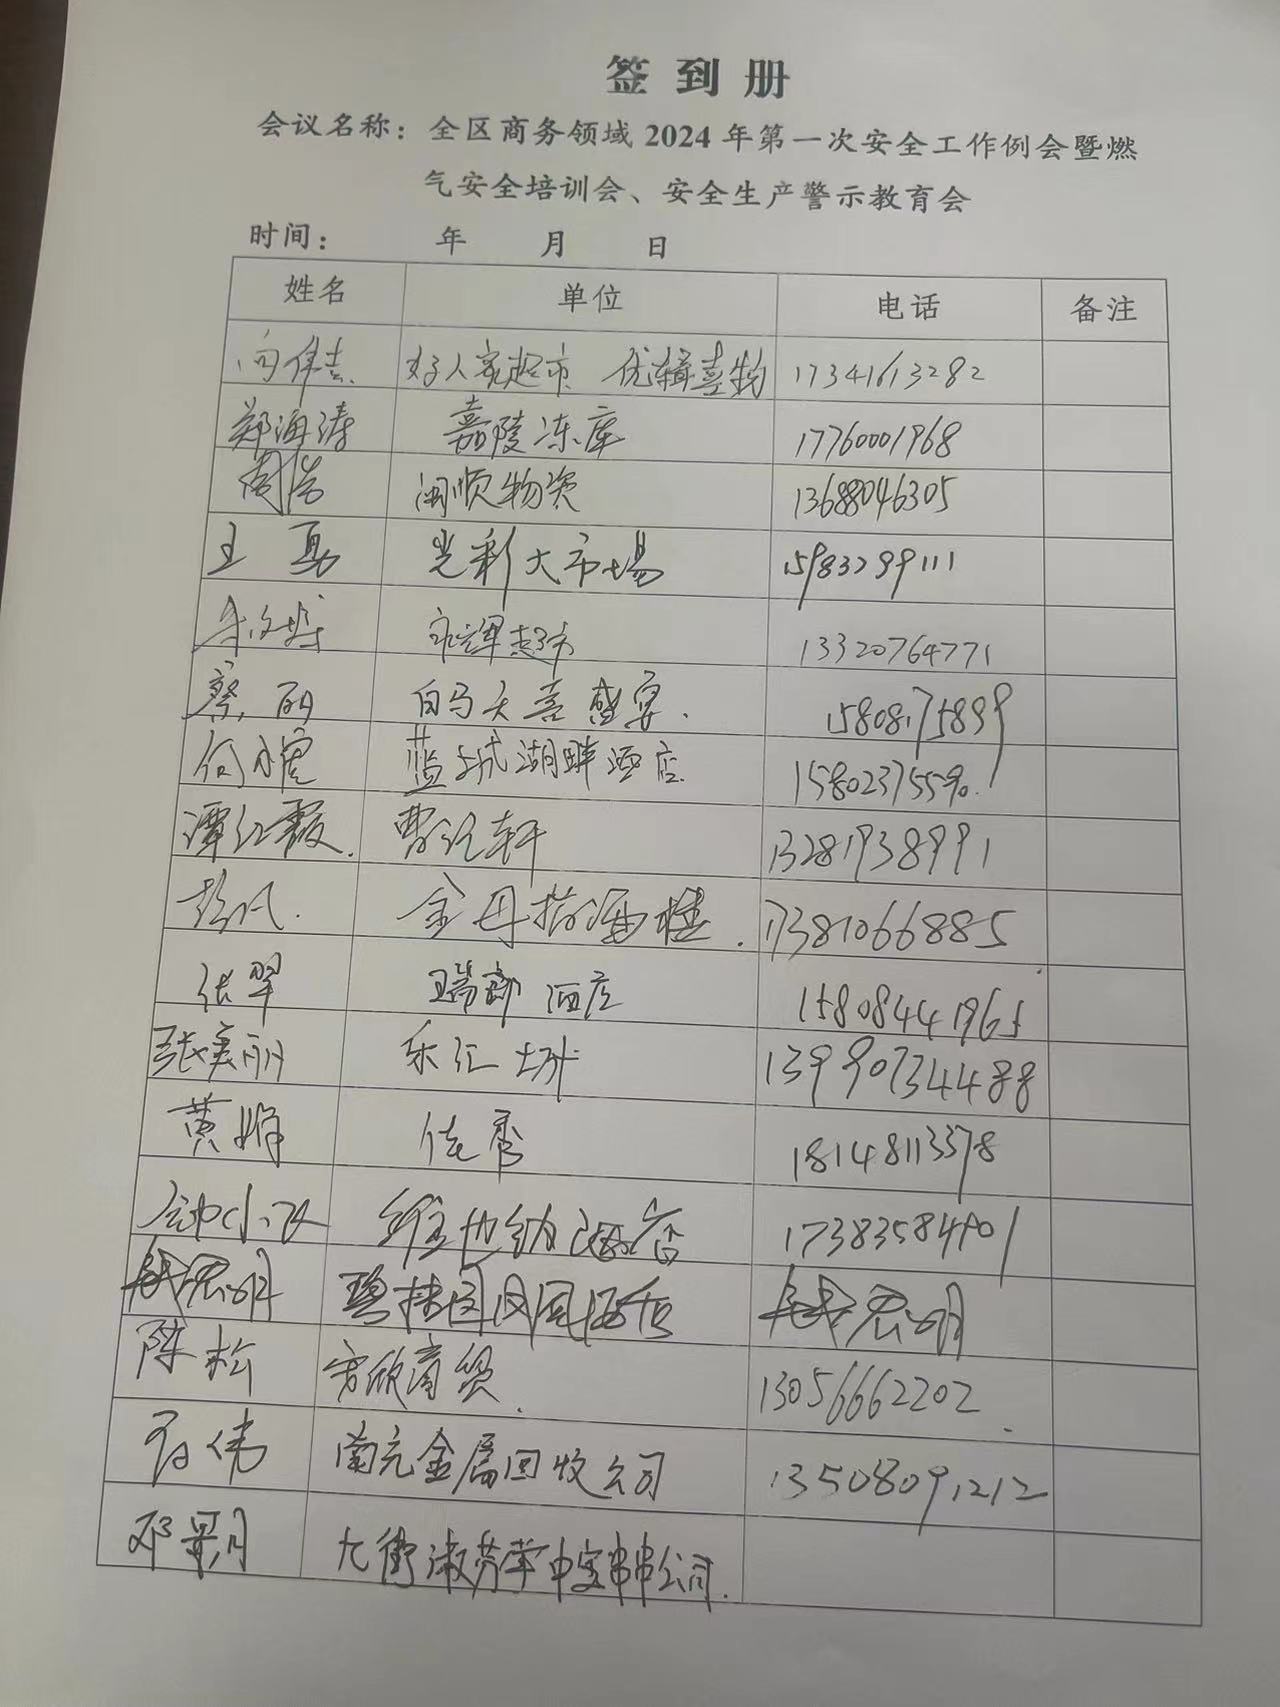 签到册
会议名称：全区商务领域 2024 年第一次安全工作例会暨燃
气安全培训会、安全生产警示教育会
时间： 年 月 日
姓名 单位 电话 备注
向伟 好人家超市 优辑喜物 17341613282
郑海涛 嘉陵冻库 17760001968
周浩 闽顺物资 13688046305
王勇 光彩大市场 15983299111
永辉超市 13320764771
蔡丽 白马大喜盛宴. 15808175899
何 蓝城湖畔酒店 15802375590.
谭红霞. 曹 轩 13281938991
彭 金母指酒楼. 17381066885
张翠 瑞 酒店 15808441965
张美丽 乐汇城 13990734488
黄娟 佳秀 18148113378
钟小 维也纳酒店 17383584901
宏明 碧桂园凤凰酒店 宏明
陈松 欣商贸. 13056662202.
伟 南充金属回收公司 13508091212
邓景月 九街淑芳 串串公司.